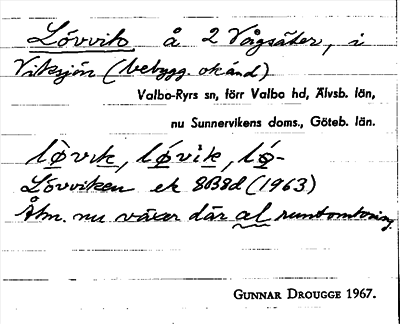 Lövvik å 2 Vågsäter, i
Viksjön (bebygg. okänd)
Valbo-Ryrs sn, förr Valbo hd, Älvsb. län,
nu Sunnervikens doms., Göteb. län.
lo̊vɩk, lǿvik, lǿ-
Lövviken ek 8B8d (1963)
Åtm. nu växer där al runtomkring.
GUNNAR DROUGGE 1967.